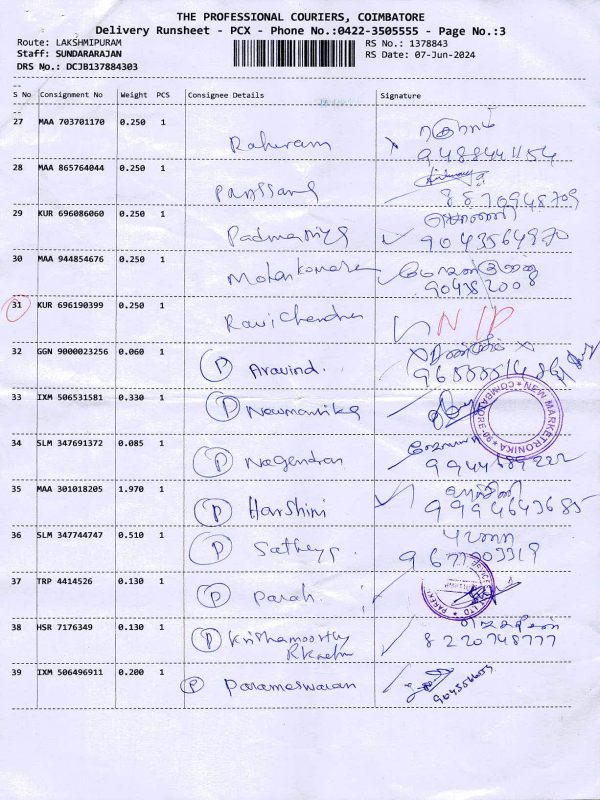 THE PROFESSIONAL COURIERS, COIMBATORE
Delivery Runsheet - PCX - Phone No.:0422-3505555 - Page No.:3
Route: LAKSHMIPURAM RS No.: 1378843
Staff: SUNDARARAJAN RS Date: 07-Jun-2024
DRS No.: DCJB137884303
S No Consignment No Weight PCS Consignee Details Signature
27 MAA 703701170 0.250 1
Raheram 9488441154
28 MAA 865764044 0.250 1
8870948709
29 KUR 696086060 0.250 1
Padmapriya 9043564970
30 MAA 944854676 0.250 1
Mohankumar 904382008
31 KUR 696190399 0.250 1
Ravichandran NIP
32 GGN 9000023256 0.060 1
P Aravind.
33 IXM 506531581 0.330 1
P Nowmanika NEW MARKETRONIKA
34 SLM 347691372 0.085 1
P Nagendran 9944689222
35 MAA 301018205 1.970 1
P Harshini 9994643685
36 SLM 347744747 0.510 1
P 9677903319
37 TRP 4414526 0.130 1
P Parah.
38 HSR 7176349 0.130 1
P Krishamoorthy 8220748777
39 IXM 506496911 0.200 1
P Parameswaran